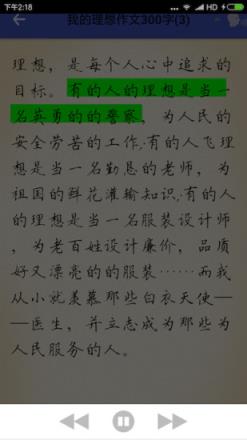 下午2:18
我的理想作文300字(3)
理想，是每个人心中追求的
目标。有的人的理想是当一
名英勇的的警察，为人民的
安全劳苦的工作；有的人飞理
想是当一名勤恳的老师，为
祖国的鲜花灌输知识；有的人
的理想是当一名服装设计师
，为老百姓设计廉价，品质
好又漂亮的的服装……而我
从小就羡慕那些白衣天使—
—医生，并立志成为那些为
人民服务的人。